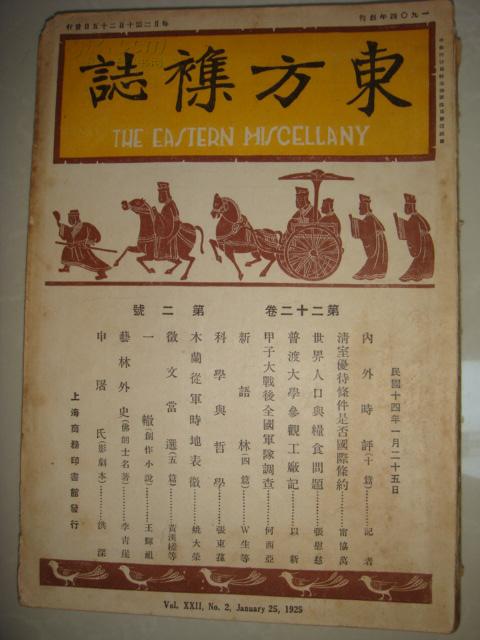 一九〇四年創刊
每月二回十日二十五日發行
東方襍誌
THE EASTERN MISCELLANY
第二十二卷 第二號
民國十四年一月二十五日
內外時評(十篇) 記者
清室優待條件是否國際條約 甯協萬
世界人口與糧食問題 張慰慈
普渡大學參觀工廠記 以新
甲子大戰後全國軍隊調查 何西亞
新語林(四篇) W生等
科學與哲學 張東蓀
木蘭從軍時地表微 姚大榮
徵文當選(五篇) 黃漢樑等
一轍(創作小說) 王輝祖
藝林外史(佛朗士名著) 李青崖
申屠氏(影劇本) 洪深
上海商務印書館發行
Vol. XXII, No. 2, January 25, 1925